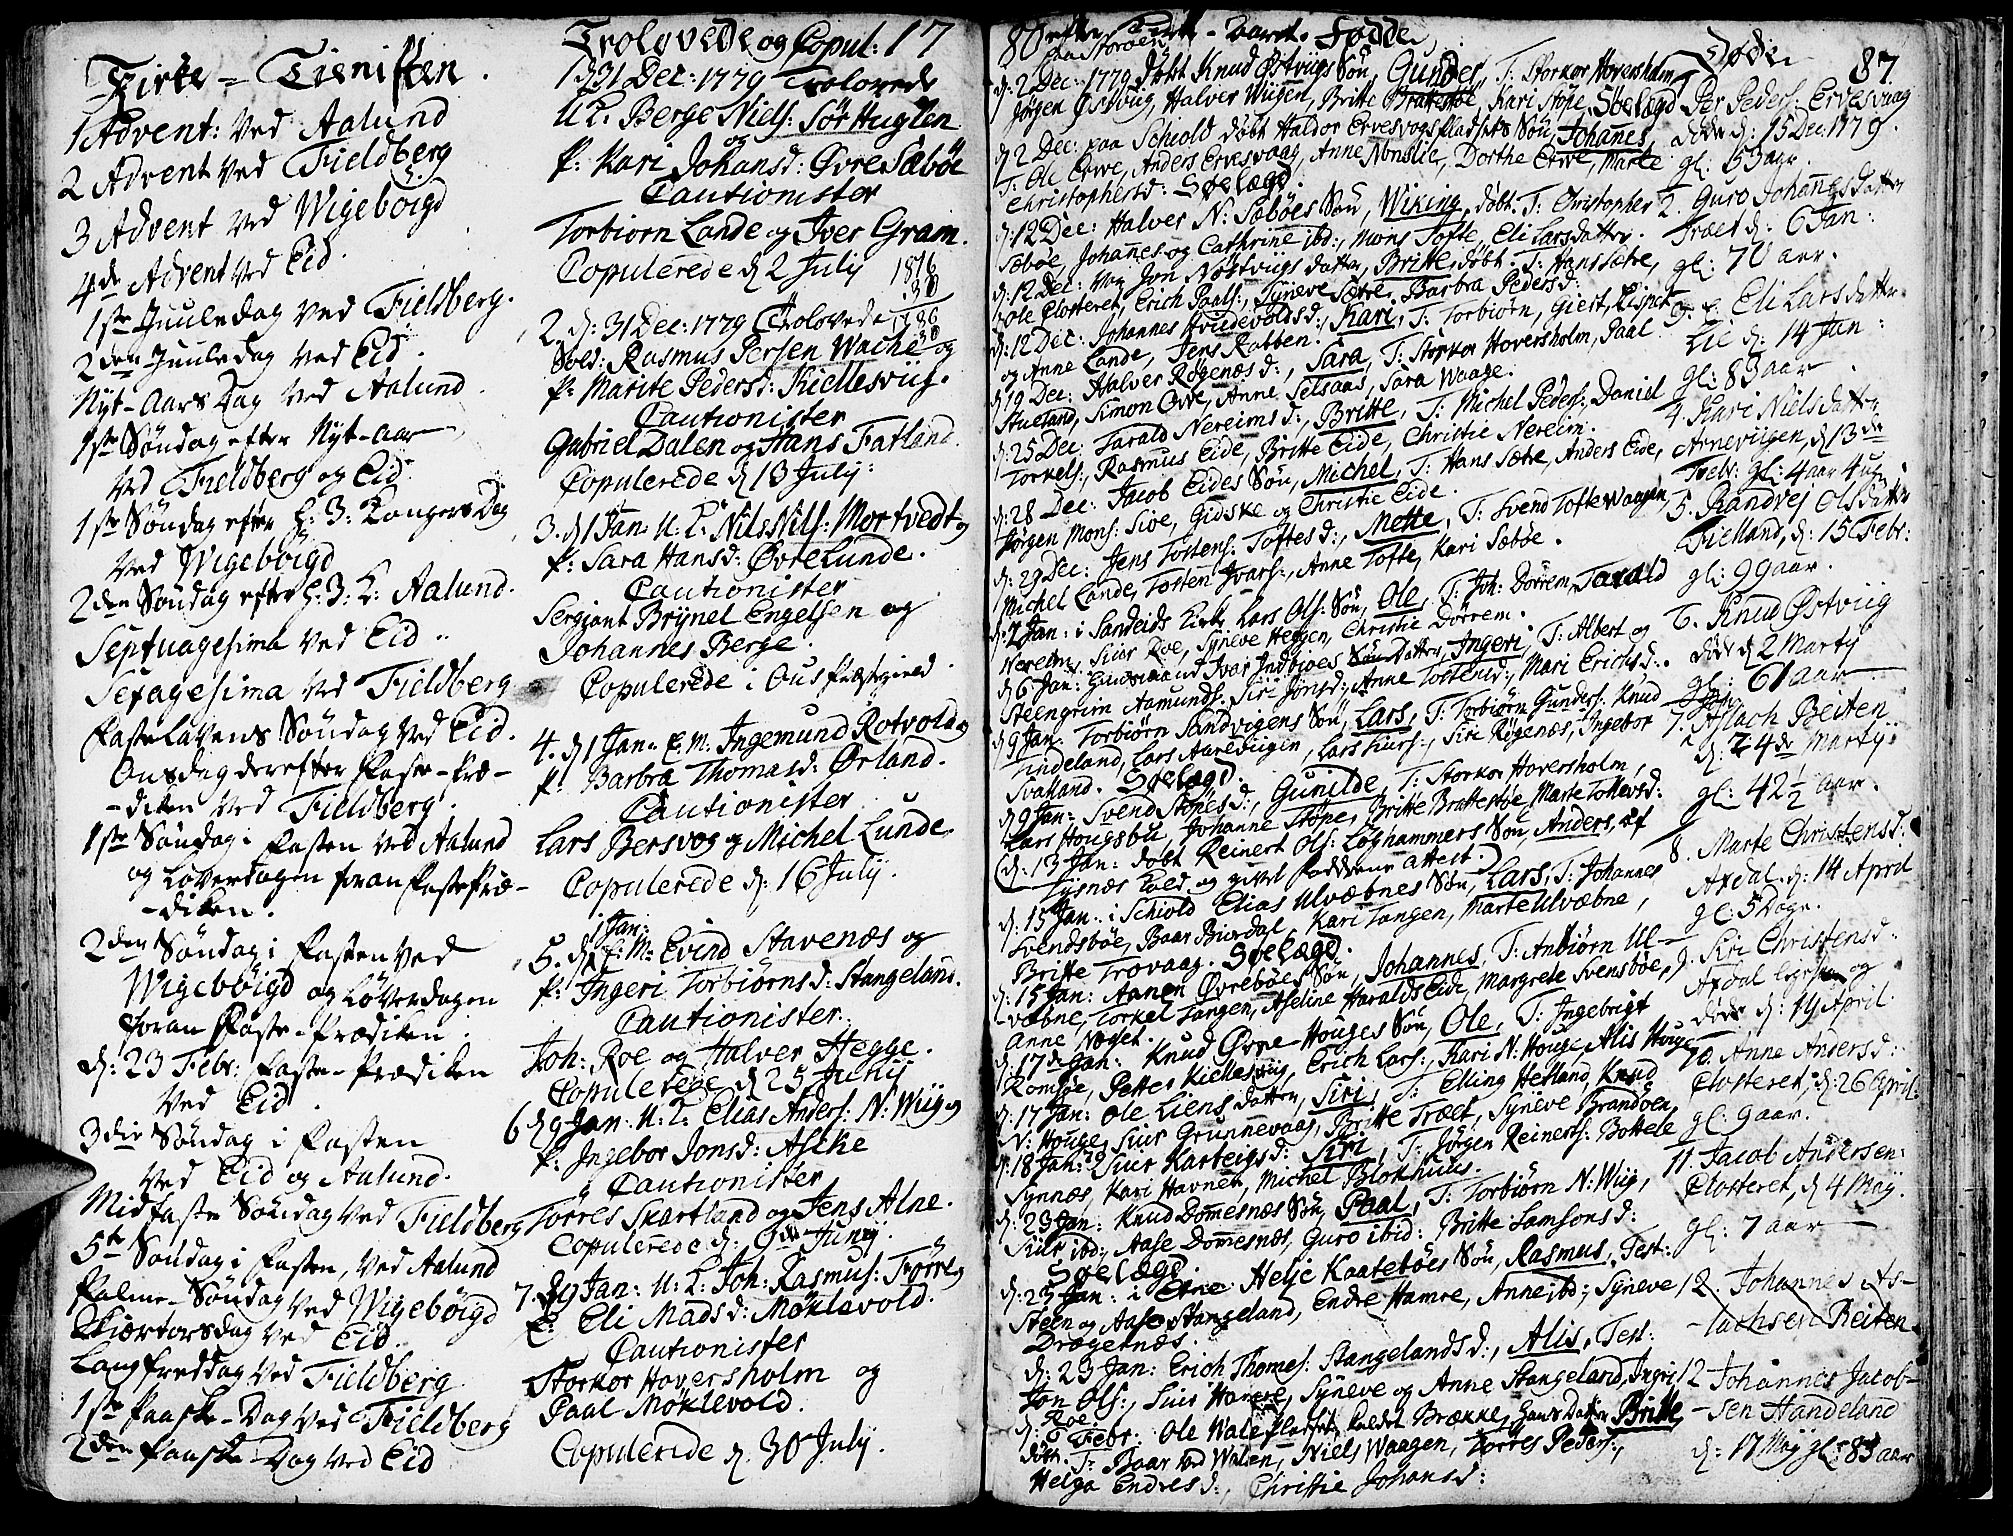 Kirke-Tienisten.
1 Advent: Ved Aalund
2 Advent Ved Fieldberg
3 Advent Ved Wigebøigd
4de Advent Ved Eid.
1ste Juuledag Ved Fieldberg.
2den Juuledag Ved Eid.
Nyt-Aars Dag Ved Aalund
1ste Søndag efter Nyt-Aar
Ved Fieldberg og Eid
1ste Søndag efter H: 3: Kongers Dag
Ved Wigebøigd
2den Søndag efter H: 3: K: Aalund.
Septuagesima Ved Eid
Sexagesima Ved Fieldberg
Fastelavens Søndag Ved Eid.
Onsdag derefter Faste-Præ-
-diken Ved Fieldberg.
1ste Søndag i Fasten Ved Aalund
og Løverdagen foran Fastepræ-
-diken.
2den Søndag i Fasten Ved
Wigebøigd og Løverdagen
foran Faste-Prædiken.
d: 23 Febr: Faste-Prædiken
Ved Eid.
3die Søndag i Fasten
Ved Eid og Aalund.
Midfaste Søndag Ved Fieldberg
5te Søndag i Fasten, Ved Aalund
Palme-Søndag Ved Wigebøigd
Skiærtorsdag Ved Eid
Langfreddag Ved Fieldberg
1ste Paaske-Dag Ved Fieldberg
2den Paaske-Dag Ved Eid
Trolovede og Copul: 17
1 d 31 Dec: 1779 Trolovede
U: K. Berge Niels: Sør Huglen
og
P: Kari Johansd: Øvre Sæbøe
Cautionister
Torbiørn Lande og Iver Gram.
Copulerede d 2 July
2. d: 31 Dec: 1779 Trolovede
Sold: Rasmus Persen Wache og
P: Marite Pedersd: Kiellesviig.
Cautionister
Gabriel Dalen og Hans Fatland.
Copulerede d 13 July:
3. d 1 Jan: U: K. Nils Nils: Mortvedt og
P: Sara Hansd: Øvre Lunde.
Cautionister
Sergjant Brynel Engelsen og
Johannes Berge.
Copulerede i Ous Præstegield.
4. d 1 Jan: E. M. Ingemund Rotvold og
P: Barbra Thomasd: Ørland.
Cautionister
Lars Bersvog og Michel Lunde,
Copulerede d: 16 July.
5. d 1 Jan: E: M: Evind Stavenæs og
P: Ingeri Torbiørnsd: Stangeland.
Cautionister.
Joh: Roe og Halver Hegge.
Copulerede d 25 Juny
6 d 9 Jan: U: K. Elias Anders: N: Wiig og
P: Ingebor Jonsd: Aske
Cautionister
Torres Skartland og Jens Alne.
Copulerede d: 9de Juny.
7. d 9 Jan: U: K: Joh: Rasmus: Tørre og
E: Eli Madsd: Møklevold.
Cautionister
Storkor Hoversholm og
Paal Møklevold.
Copulerede d. 30 July.
80 efter Kirke-Aaret. Fødde
paa Storøen
d: 2 Dec: 1779 døbt Knud Østviigs Søn, Gunder, T: Storkor Hoversholm,
Jørgen Østviig, Halver Wiigen, Britte Brattestøe, Kari Støpe, Søelægd
d 2 Dec: paa Schiold døbt Haldor Ervesvogs Pladsets Søn, Johanes,
T: Ole Erve, Anders Ervesvaag, Anne Nonslie, Dorthe Erve, Marte
Christophersd: Søelægd
d: 12 Dec: Halver N: Sæbøes Søn, Wiking, døbt. T: Christopher
Sæbøe, Johannes og Cathrine ibd:, Mons Tofte, Eli Larsdatter.
d: 12 Dec: Jon Nøstviigs datter, Britte, døbt. T: Hans Sætre,
Ole Closteret, Erich Paals:, Syneve Sætre. Barbra Pedersd:
d: 12 Dec: Johannes Hvidevoldsd:, Kari, T: Torbiørn, Giert,
og Anne Lande, Jens Rabben.
d 19 Dec: Halver Røgenæsd:, Sara, T: Storkor Hoversholm, Paal
Stueland, Simon Erve, Anne Selsaas, Sara Waage.
d: 25 Dec: Tarald Nereimsd:, Britte, T: Michel Peders: Daniel
Torkels:, Rasmus Eide, Britte Eide, Christie Nereim.
d: 28 Dec: Jacob Eides Søn, Michel, T: Hans Sætre, Anders Eide,
Jørgen Mons: Sioe, Gidske og Christie Eide.
d: 29 Dec: Jens Tostens: Toftesd:, Mette, T: Svend Tofte Waagen,
Michel Lande, Tosten Ivars:, Anne Tofte, Kari Sæbøe.
d: 2 Jan: i Sandeids Kirke Lars Ols: Søn, Ole, T: Joh: Dørrem, Tarald
Nereim, Siur Roe, Syneve Heggen, Christie Dørrem.
d 6 Jan: Huusmand Ivar Indbioes Datter, Ingeri, T: Albert og
Steengrim Aamunds: Siri Jonsd:, Anne Tostensd:, Mari Erichsd:.
d 9 Jan: Torbiørn Sandvigens Søn, Lars, T: Torbiørn Gunders: Knud
Tindeland, Lars Aareviigen, Lars Siurs:, Siri Røgenæs, Ingebor
Svatland. Søelægd.
d 9 Jan: Svend Støpesd:, Gunilde, T: Storkor Hoversholm,
Lars Hougsbøe, Johanne Støpe, Britte Brattestøe, Marte Tollevsd:
(d: 13 Jan: døbt Reinert Ols: Løghammers Søn, Anders, af
Tysnæs Kald og givet Fadderne attest.)
d: 15 Jan: i Schiold Elias Ulvæbnes Søn, Lars, T: Johannes
Svendsbøe, Baar Biordal, Kari Tangen, Marte Ulvæbne,
Britte Trovaag. Søelægd.
d: 15 Jan: Aanen Øvrebøes Søn, Johannes, T: Anbiørn Ul-
væbne, Torkel Tangen, Aseline Haralds Eide, Margrete Svensbøe,
Anne Næget.
d: 17de Jan: Knud Øvre-Houges Søn, Ole, T: Ingebrigt
Romsøe, Petter Kiellesviig, Erich Lars:, Kari N: Houge, Alis Houge
d: 17 Jan: Ole Liens datter, Siri, T: Elling Hetland, Knud
N: Houge, Siur Grunnevaag, Britte Træet, Syneve Brandven,
d: 18 Jan: Siur Karteigsd: Siri, T: Jørgen Reinerts: Bottele
Synnæs, Kari Havnen, Michel Blokhuus.
d: 23 Jan: Knud Domesnæs Søn, Paal, T: Torbiørn N: Wiig,
Siur ibd:, Aase Domesnæs, Guro ibid: Britte Samsonsd:
Søelægd.
d: 23 Jan: i Etne Helje Kaatebøes Søn, Rasmus, Test:
Steen og Aase Stangeland, Endre Hamre, Anne ibd:, Syneve
Drægetnæs.
d: 23 Jan: Erich Thomes: Stangelandsd:, Alis, Test:
Jon Ols:, Siur Hamre, Syneve og Anne Stangeland, Ingri
Roe.
d: 6 Febr: Ole Wale Pladset kaldet Brække, hans Datter Britte,
døbt. T: Baar Ved Walen, Niels Waagen, Torres Peders:,
Helga Endresd:, Christie Johansd:
Døde 87
1 Per Peders: Ervesvaag
døde d: 15 Dec: 1779.
gl: 53 aar.
2. Guro Johannesdatter
Træet d: 6 Jan:
gl: 70 aar.
3. E: Eli Larsdatter
Lie d: 14 Jan:
gl: 83 aar
4. Kari Nielsdatter
Arneviigen, d 13de
Febr: gl: 4 aar 4 ug:
5. Randvej Olsdatter
Fielland, d: 15 Febr:
gl: 99 aar.
6. Knud Østviig
døde d 2 Marty
gl: 61 aar
7. Aslach Beiten
d: 24de Marty.
gl: 42 1/2 aar.
8. Marte Christensd:
Axdal d: 14 April
gl: 5 Dage.
9. Siri Christensd:
Axdal og
døde d: 19 April.
10. Anne Andersd:
Closteret, d: 26 April.
gl: 9 aar.
11. Jacob Andersen:
Closteret, d 4 May.
gl: 7 aar
12. Johannes As-
lachsen Beiten.
12 Johannes Jacob-
-sen Handeland
d: 17 May gl: 83 aar